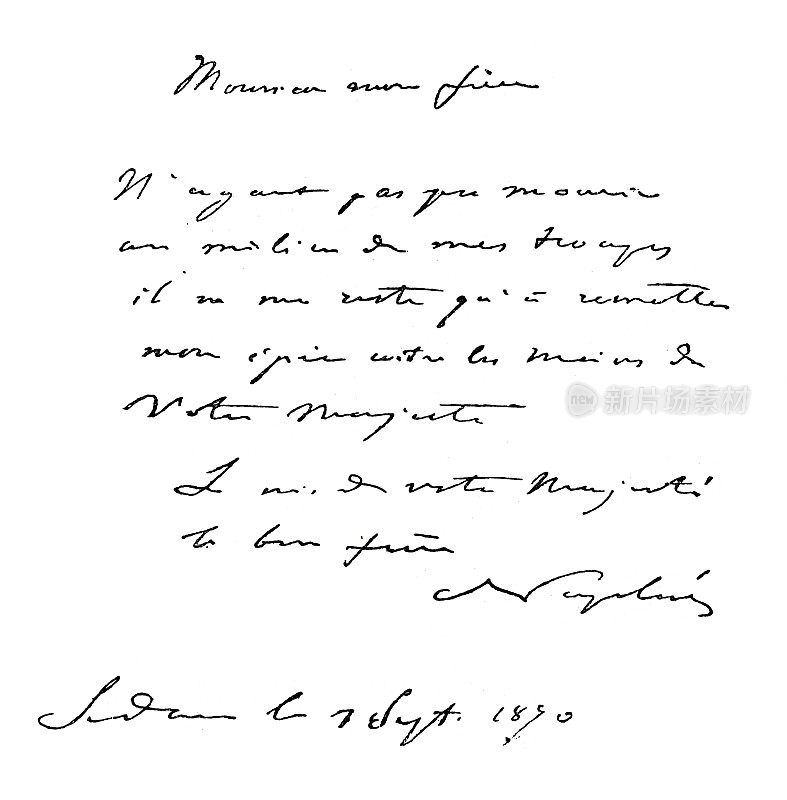 Monsieur mon frère
N'ayant pas pu mourir
au milieu de mes troupes
il ne me reste qu'à remettre
mon épée entre les mains de
Votre Majesté
Je suis de votre Majesté
le bon frère
Napoléon
Sedan le 1 Sept. 1870
new 新片场素材